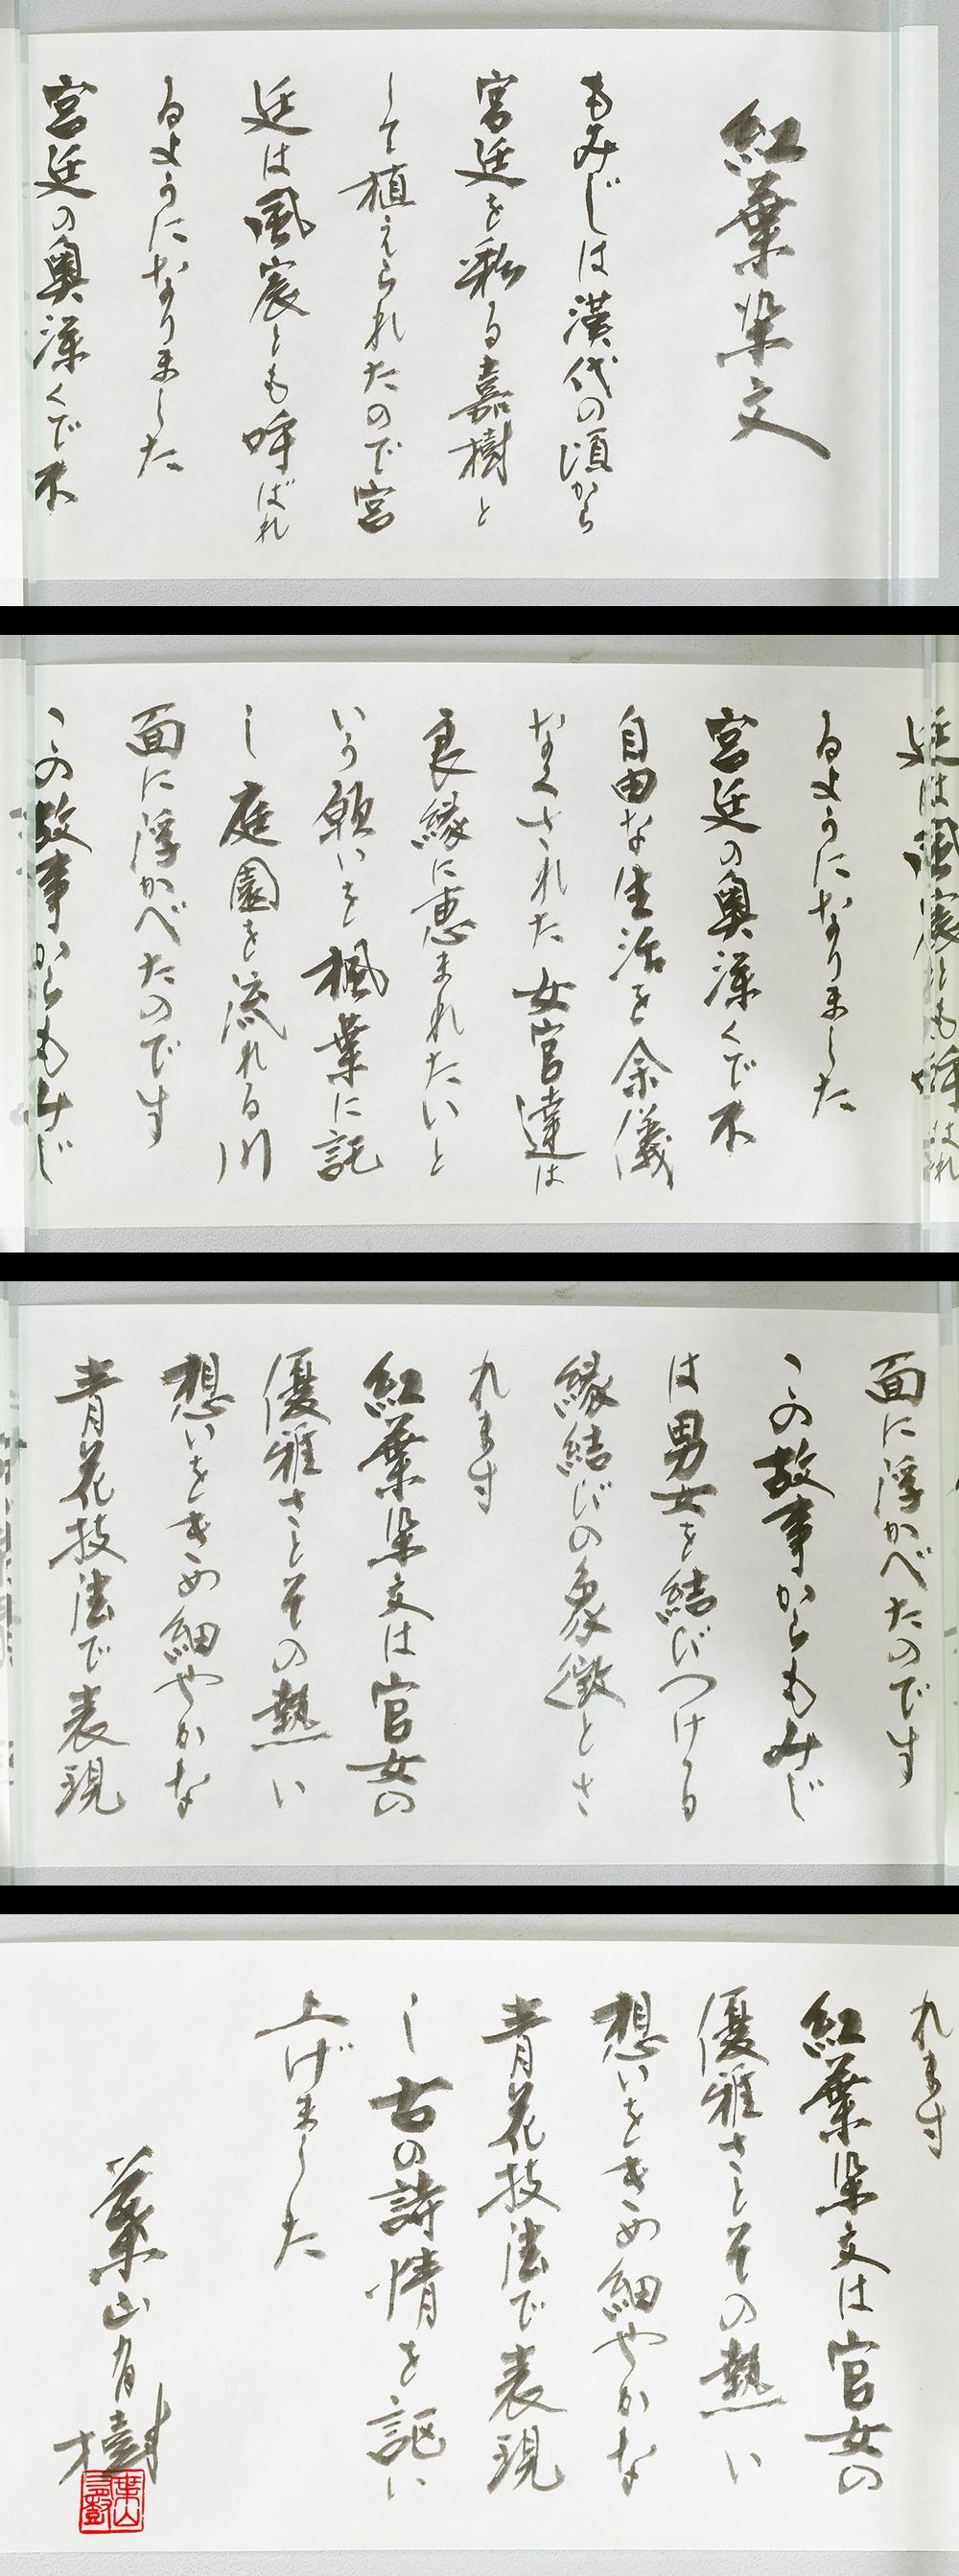 紅葉染文
もみじは漢代の頃から
宮廷を彩る嘉樹と
して植えられたので宮
廷は風宸とも呼ばれ
るようになりました
宮廷の奥深くで不
廷は風宸とも呼ばれ
るようになりました
宮廷の奥深くで不
自由な生活を余儀
なくされた女官達は
良縁に恵まれたいと
いう願いを楓葉に託
し庭園を流れる川
面に浮かべたのです
この故事からもみじ
面に浮かべたのです
この故事からもみじ
は男女を結びつける
縁結びの象徴とさ
れます
紅葉染文は官女の
優雅さとその熱い
想いをきめ細やかな
青花技法で表現
れます
紅葉染文は官女の
優雅さとその熱い
想いをきめ細やかな
青花技法で表現
し古の詩情を謳い
上げました
葉山有樹
葉山有樹